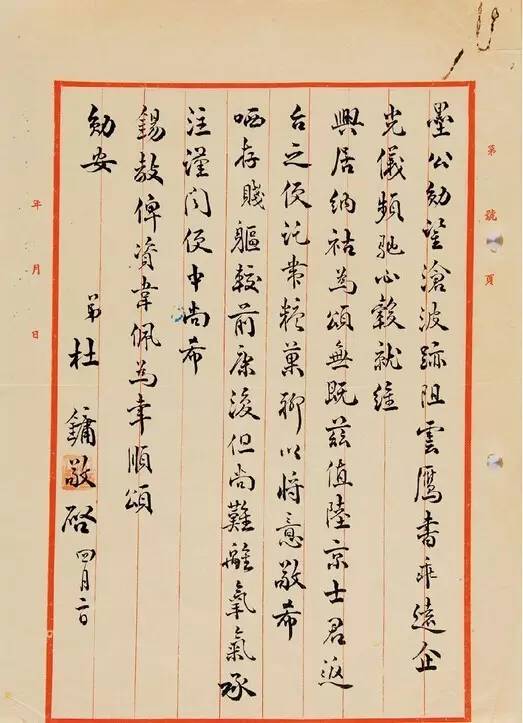 第 號 頁
墨公勛鑒滄波跡阻雲鴈書乖遠企
光儀頻馳心轂就維
興居納祜為頌無既茲值陸京士君返
台之便託帶糕菓聊以將意敬希
哂存賤軀較前康復但尚難離氧氣承
注謹聞便中尚希
錫教俾資韋佩為幸順頌
勛安
弟杜鏞敬啓 四月二日
年 月 日